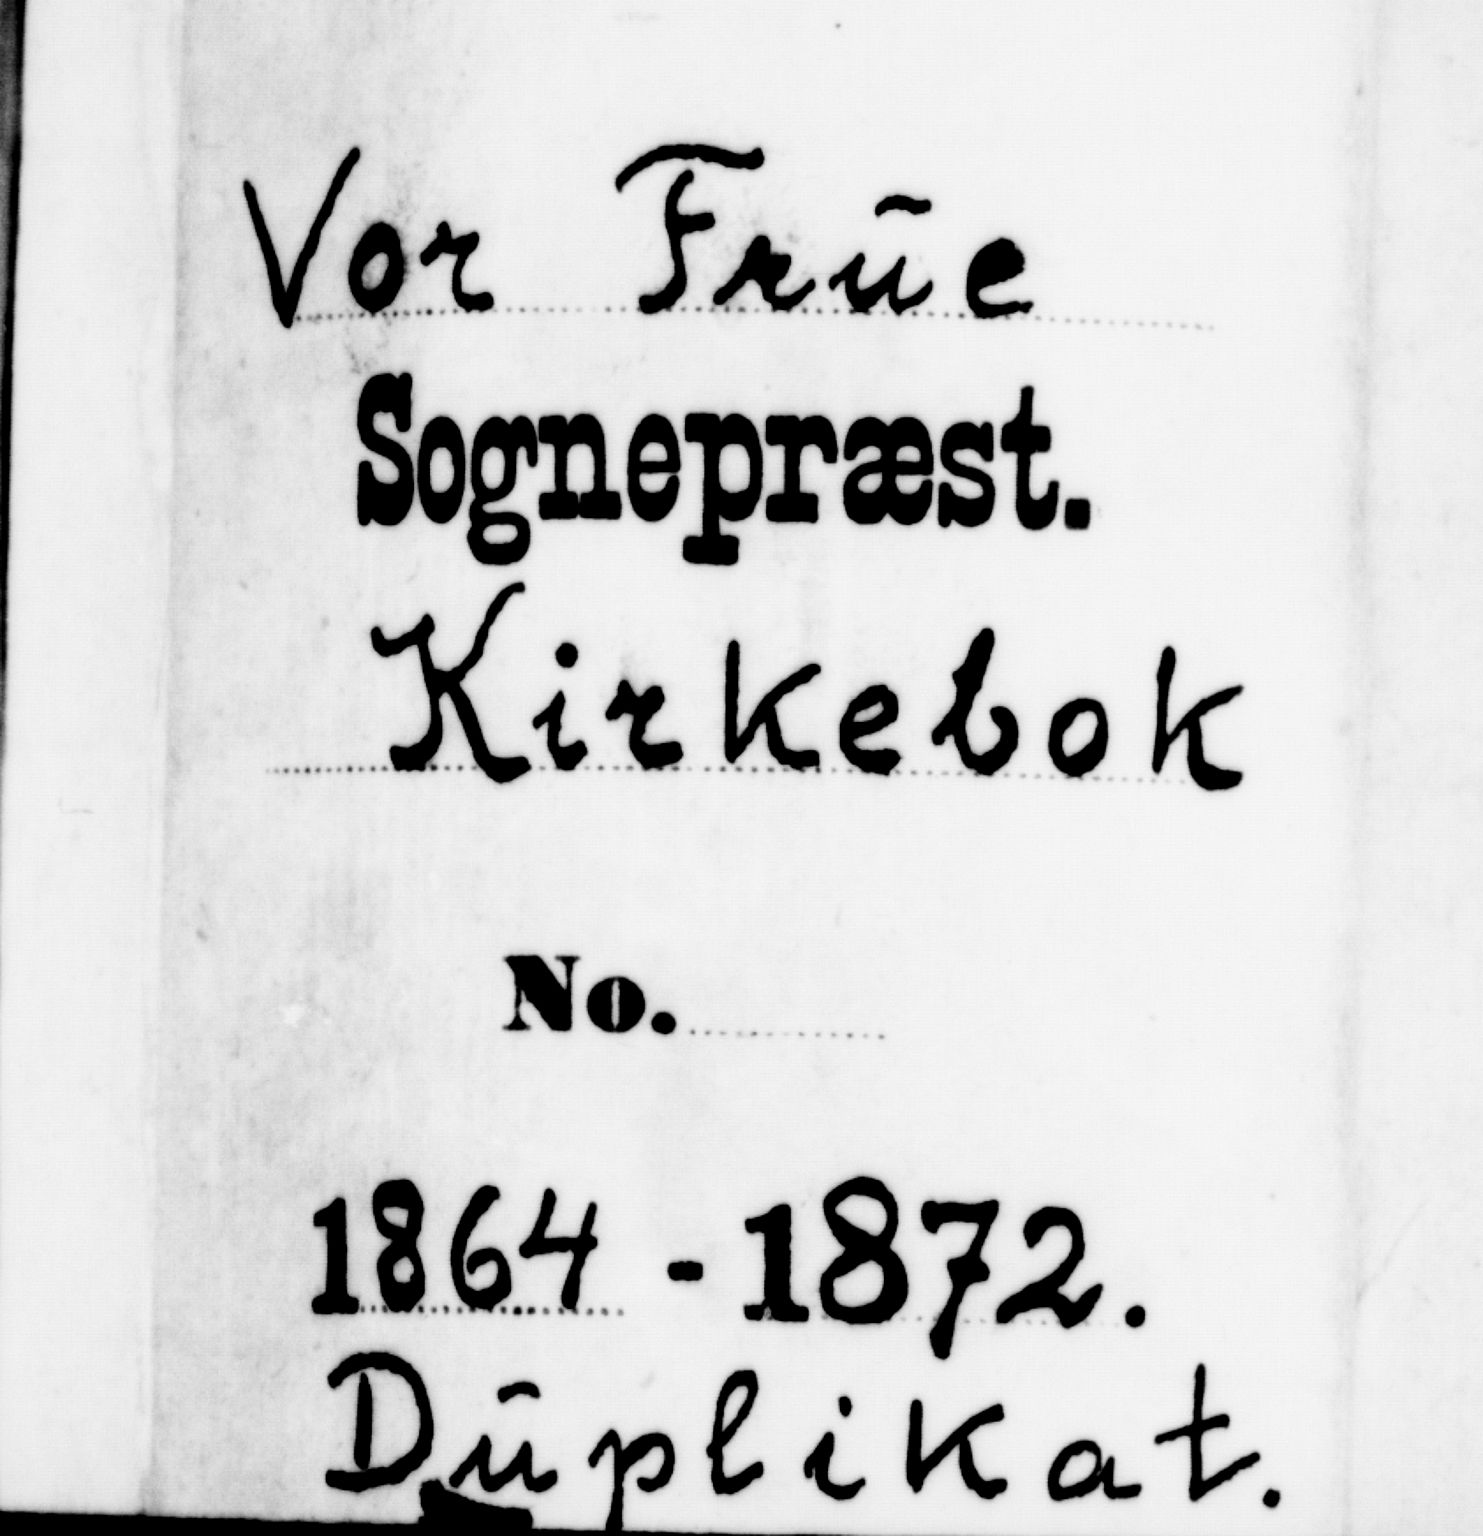 Vor Frūe
Sognepræst.
Kirkebok
No.
1864 - 1872.
Dūplikat.